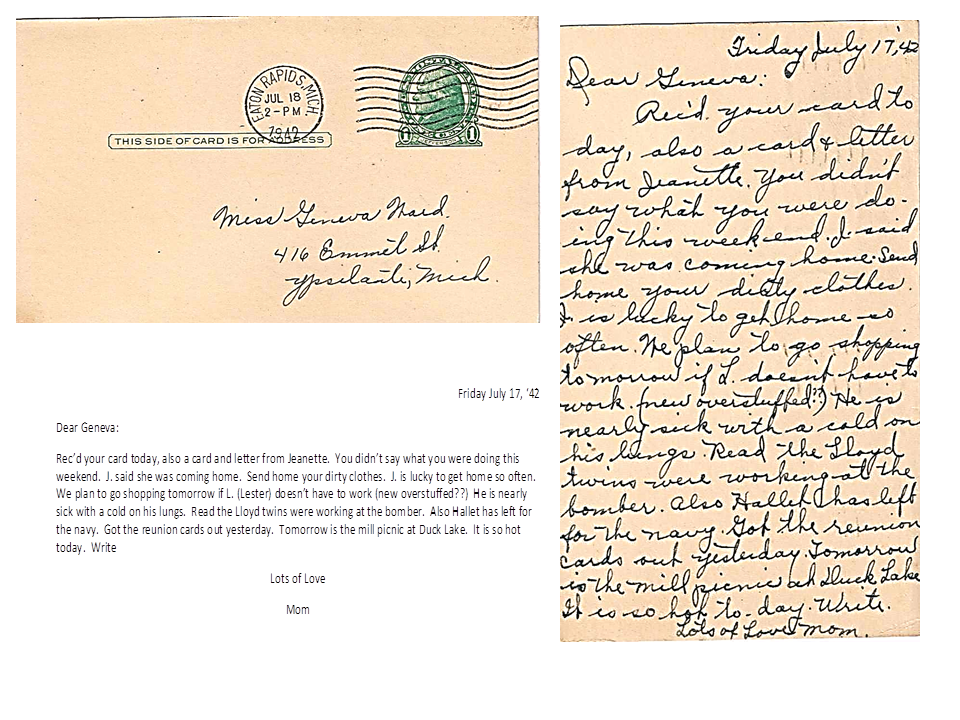 EATON RAPIDS, MICH.
JUL 18
2-PM
1942
THIS SIDE OF CARD IS FOR ADDRESS
1 1
Miss Geneva Ward.
416 Emmet St.
Ypsilanti, Mich.
Friday July 17, '42
Dear Geneva:
Rec'd your card today, also a card and letter from Jeanette. You didn't say what you were doing this
weekend. J. said she was coming home. Send home your dirty clothes. J. is lucky to get home so often.
We plan to go shopping tomorrow if L. (Lester) doesn't have to work (new overstuffed??) He is nearly
sick with a cold on his lungs. Read the Lloyd twins were working at the bomber. Also Hallet has left for
the navy. Got the reunion cards out yesterday. Tomorrow is the mill picnic at Duck Lake. It is so hot
today. Write
Lots of Love
Mom
Friday July 17, '42
Dear Geneva:
Rec'd. your card to
day, also a card & letter
from Jeanette. You didn't
say what you were do-
ing this week-end. J. said
she was coming home. Send
home your dirty clothes.
J. is lucky to get home so
often. We plan to go shopping
tomorrow if L. doesn't have to
work. (new overstuffed??) He is
nearly sick with a cold on
his lungs. Read the Lloyd
twins were working at the
bomber. Also Hallet has left
for the navy. Got the reunion
cards out yesterday. Tomorrow
is the mill picnic at Duck Lake
It is so hot to-day. Write.
Lots of Love Mom.